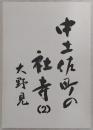 中土佐町の
社寺(2)
大野見